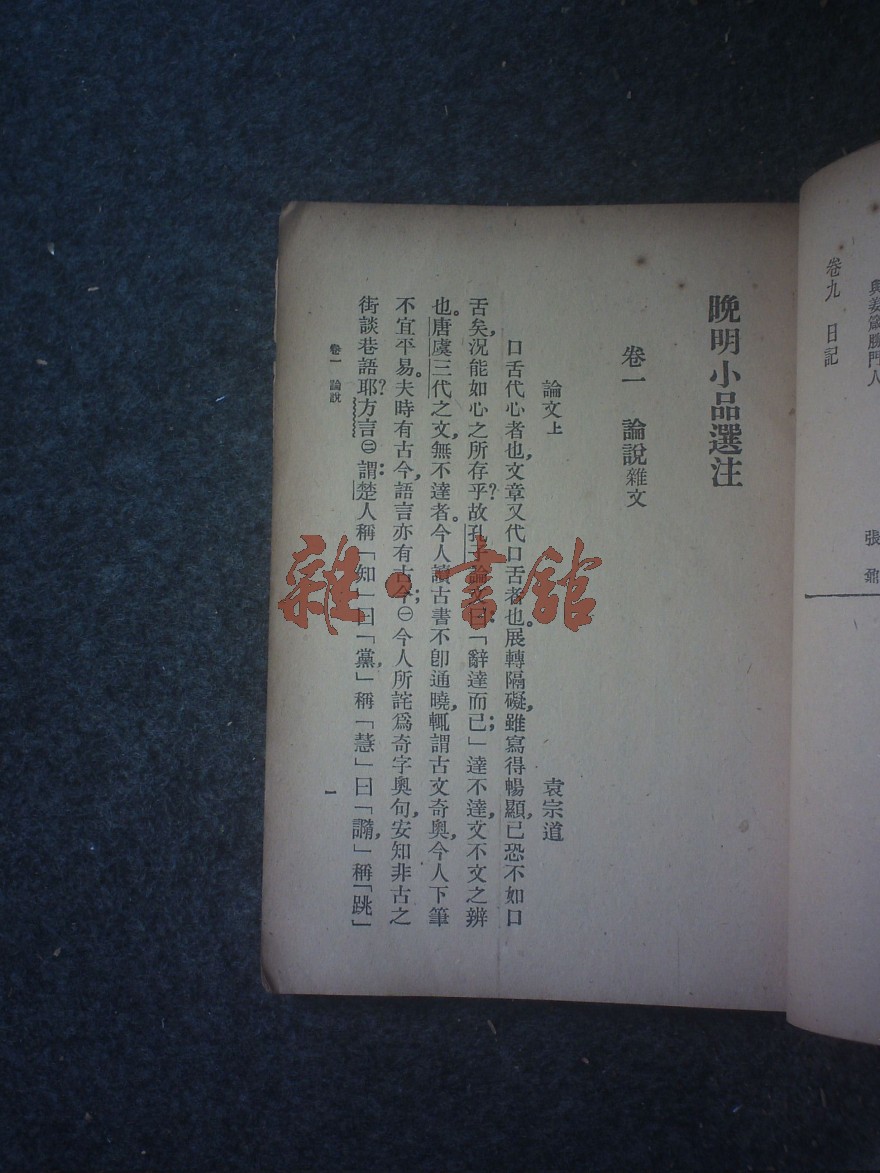 卷九　日記
張　鼐
晚明小品選注
卷一　論說雜文
論文上　袁宗道
口舌代心者也，文章又代口舌者也。展轉隔礙，雖寫得暢顯，已恐不如口
舌矣，況能如心之所存乎？故孔子論文曰：「辭達而已；」達不達，文不文之辨
也。唐虞三代之文，無不達者。今人讀古書不卽通曉，輒謂古文奇奧，今人下筆
不宜平易。夫時有古今，語言亦有古今；㊀今人所詫爲奇字奧句，安知非古之
街談巷語耶？方言㊁謂：楚人稱「知」曰「黨，」稱「慧」曰「䜏，」稱「跳」
卷一　論說
一
雜·書館